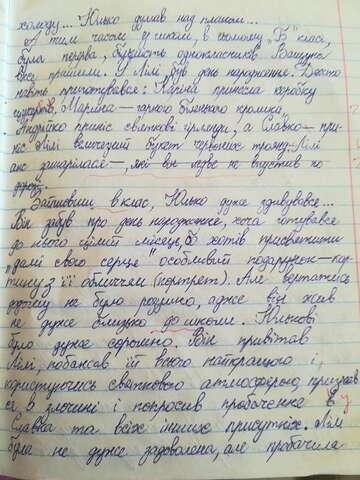 холоду... Юлько думав над планом...
А тим часом зранком, в сьомому „Б" класі,
була перерва, більшість однокласників
вже прийшли. У Лілі був день народження.
приготувався: Каріна принесла коробку
цукерок, Марійка – гарного білого кролика,
Андрійко приніс святкові гірлянди, а Славко – при-
ніс Лілі величезний букет червоних троянд. Лілі
аж зашарілася –, які він ледве не впустив по
дорозі.
Зайшовши в клас, Юлько дуже здивувався...
Він забув про день народження, хоча готувався
до нього цілий місяць, бо хотів присвятити
„дамі свого серця" особливий подарунок – кар-
тину з її обличчям (портрет). Але вертатись
додому не було розумно, адже він жив
не дуже близько до школи. Юлькові
було дуже соромно. Він привітав
Лілі, побажав їй всього найкращого і,
користуючись святковою атмосферою, признав
ся в злочині і попросив пробачення в у
Славка та всіх інших присутніх. Лілі
була не дуже задоволена, але пробачила